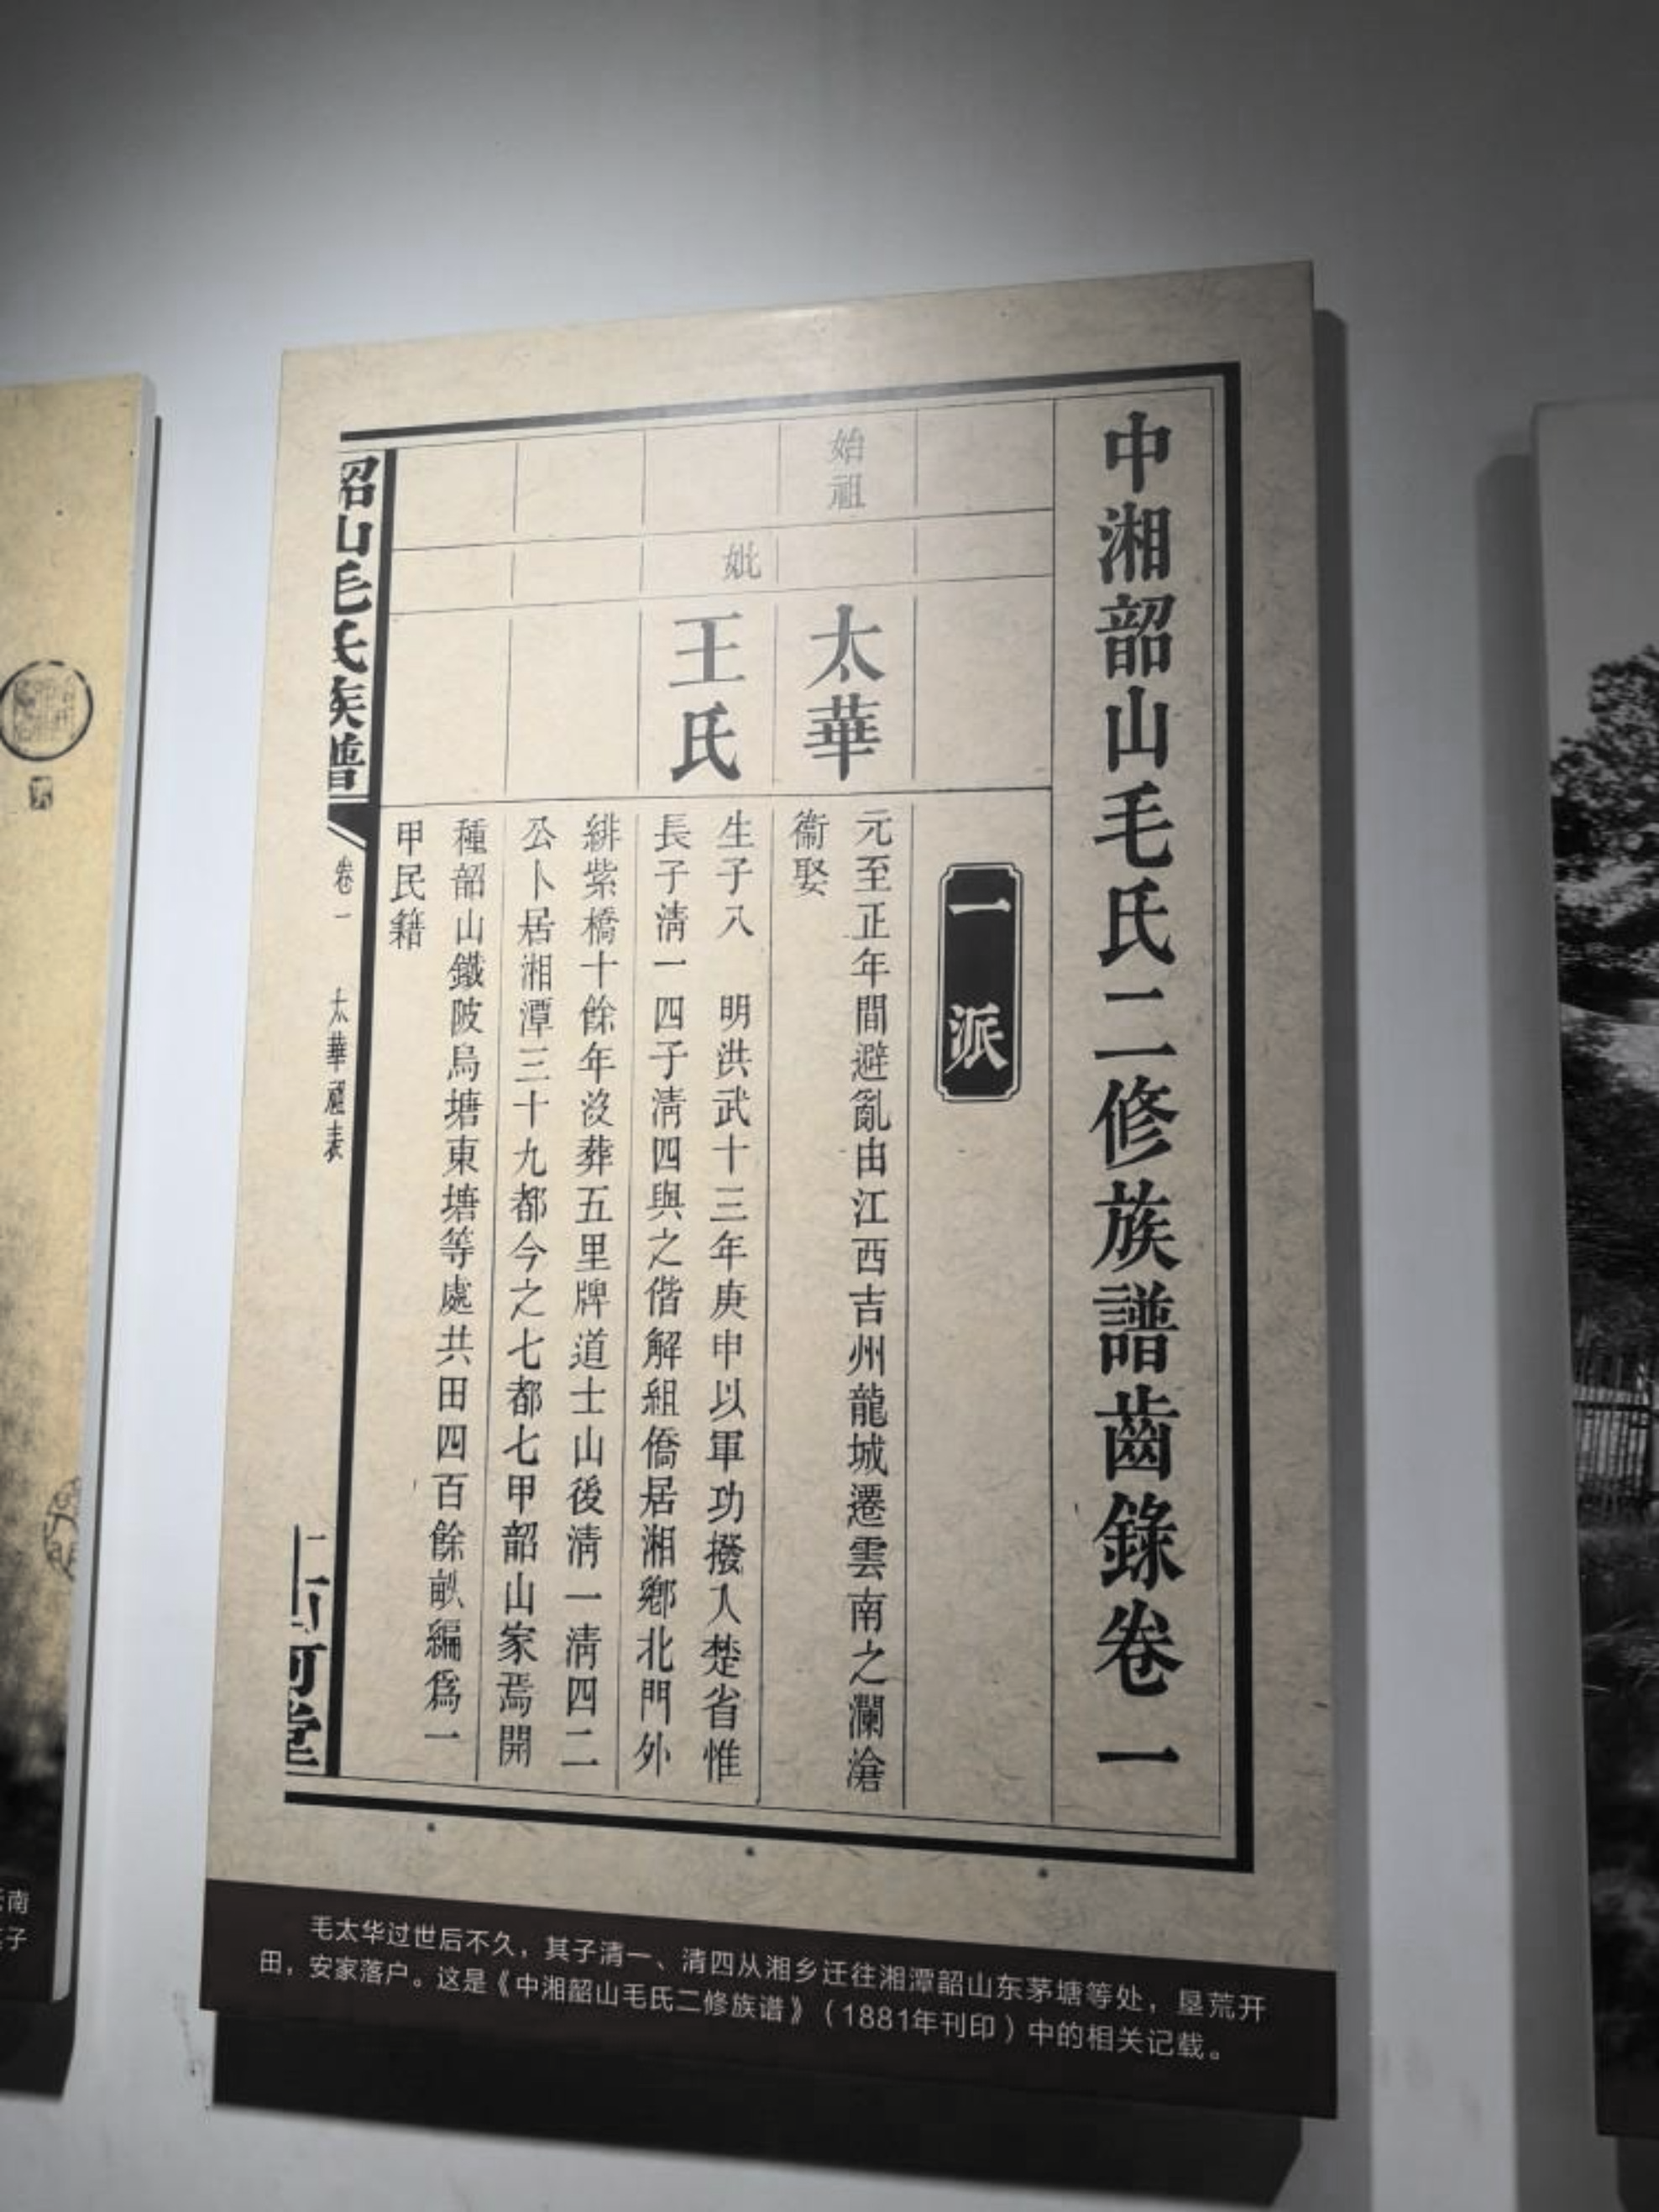 中湘韶山毛氏二修族譜齒錄卷一
一派
始祖
太華
元至正年間避亂由江西吉州龍城遷雲南之瀾滄
衞娶
妣
王氏
生子八 明洪武十三年庚申以軍功撥入楚省惟
長子淸一四子淸四與之偕解組僑居湘鄕北門外
緋紫橋十餘年沒葬五里牌道士山後淸一淸四二
公卜居湘潭三十九都今之七都七甲韶山家焉開
種韶山鐵陂烏塘東塘等處共田四百餘畝編爲一
甲民籍
韶山毛氏族譜
卷一
太華祖表
毛太华过世后不久，其子清一、清四从湘乡迁往湘潭韶山东茅塘等处，垦荒开
田，安家落户。这是《中湘韶山毛氏二修族谱》（1881年刊印）中的相关记载。
南
子